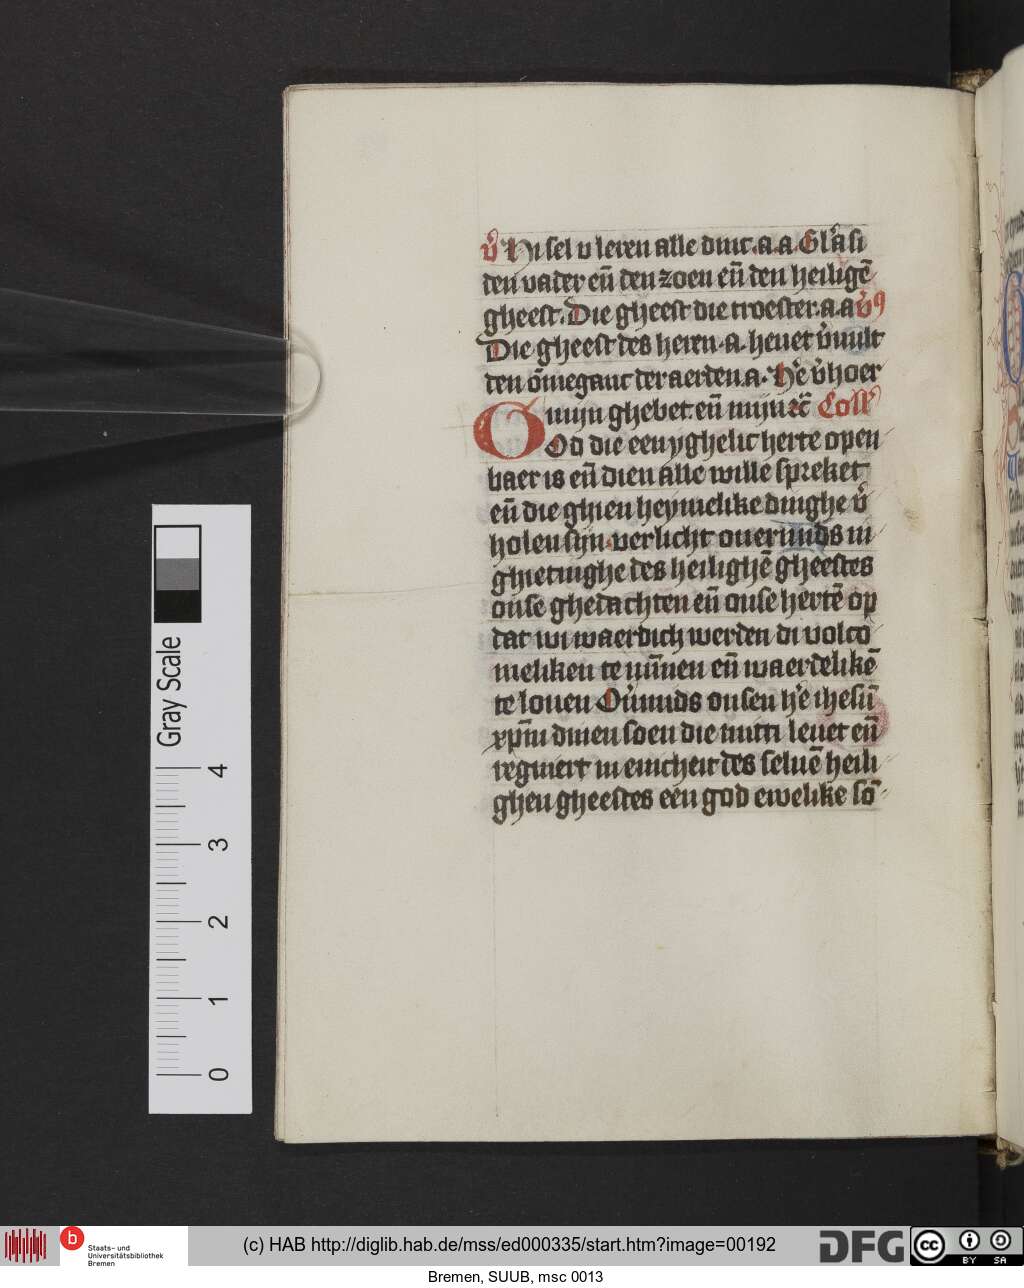 v̾ Hi sel v leren alle dinc.a.a. Gl̾a si
den vader en̄ den zoen en̄ den heilighē
gheest. Die gheest die troester.a.a v̾9
Die gheest des heren.a. heuet v̾uult
den ōmeganc der aerden.a. He̾ v̾hoer
mijn ghebet. en̄ mijn rc̄ Coll̾
God die een yghelic herte open
baer is en̄ dien alle wille spreket
en̄ die ghien heymelike dinghe v̾
holen sijn. verlicht ouermids in
ghietinghe des heilighē gheestes
onse ghedachten en̄ onse hertē op
dat wi waerdich werden di volco
meliken te mīnen en̄ waerdelikē
te louen Ou̾mids onsen he̾ ihesū
xp̄m dinen soen die mitti leuet en̄
regniert in enicheit des seluē heili
ghen gheestes een god ewelike sō
Gray Scale
4
3
2
1
0
b
Staats- und
Universitätsbibliothek
Bremen
(c) HAB http://diglib.hab.de/mss/ed000335/start.htm?image=00192
DFG
cc
BY SA
Bremen, SUUB, msc 0013